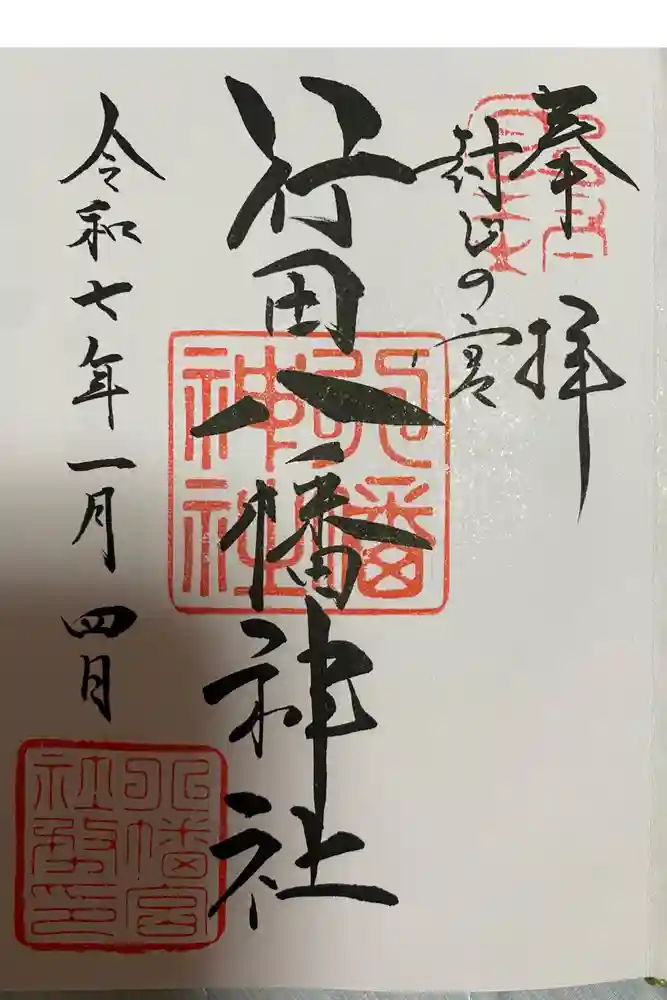 奉拝
封じの宮
行田八幡神社
八幡
神社
令和七年一月四日
八幡宮
社務印